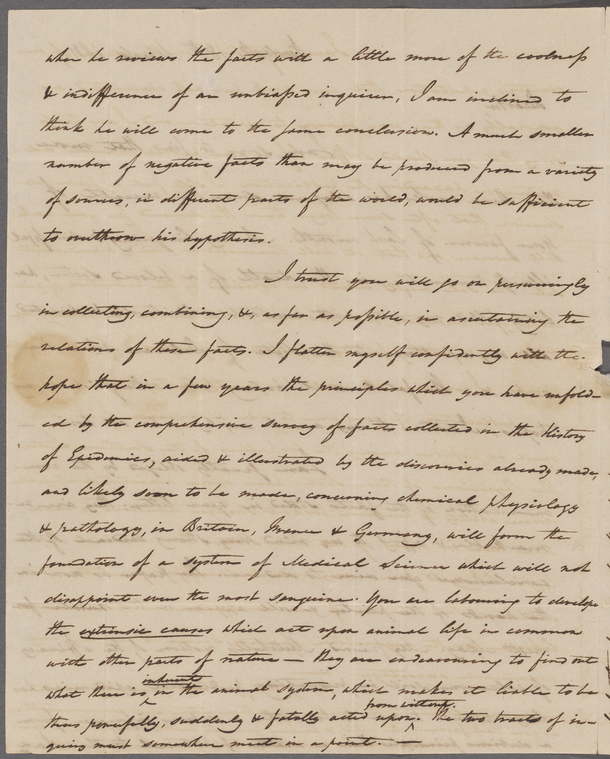 when he reviews the facts with a little more of the coolness
& indifference of an unbiassed inquirer, I am inclined to
think he will come to the same conclusion. A much smaller
number of negative facts than may be produced from a variety
of sources, in different parts of the world, would be sufficient
to overthrow his hypothesis.
I trust you will go on perseveringly
in collecting, combining, &, as far as possible, in ascertaining the
relations of these facts. I flatter myself confidently with the
hope that in a few years the principles which you have unfold-
ed by the comprehensive survey of facts collected in the History
of Epidemics, aided & illustrated by the discoveries already made,
and likely soon to be made, concerning chemical physiology
& pathology, in Britain, France & Germany, will form the
foundation of a system of Medical Science which will not
disappoint even the most sanguine. You are labouring to develope
the extrinsic causes which act upon animal life in common
with other parts of nature — they are endeavouring to find out
what there is inherent in the animal system, which makes it liable to be
thus powerfully, suddenly & fatally acted upon from without. The two tracts of in-
quiry must somewhere meet in a point. —